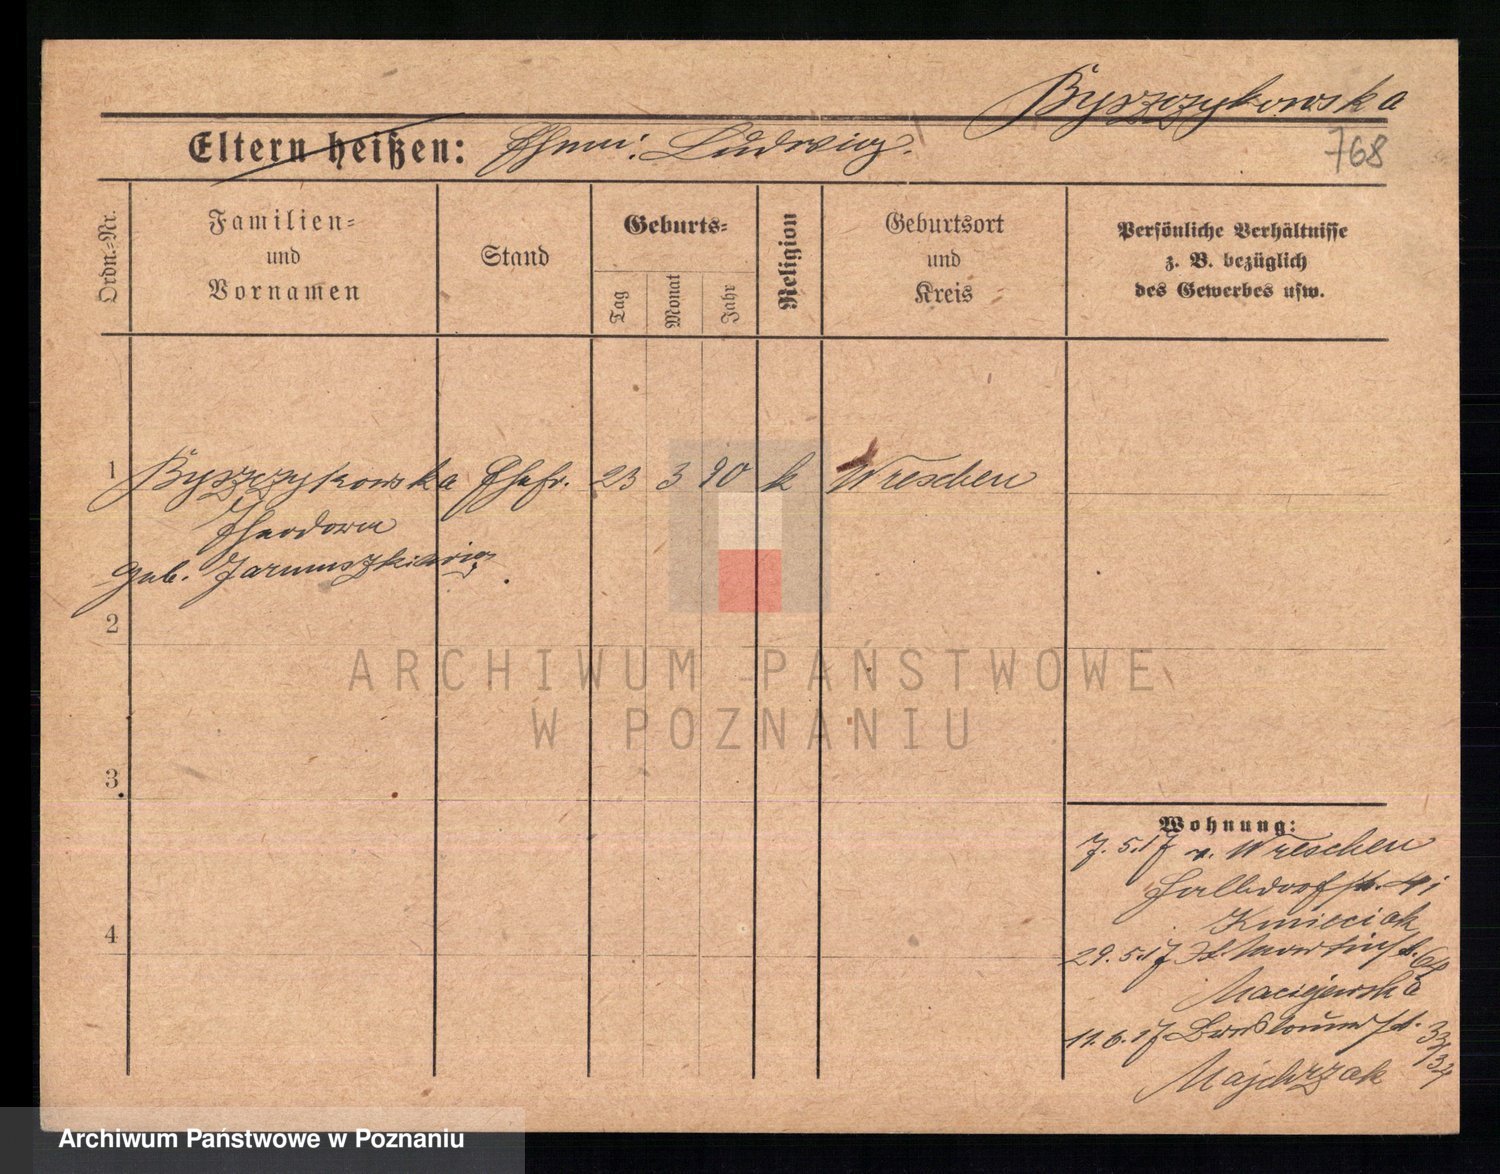 Byszczykowska
Eltern heißen: Ehem: Ludwig.
768
Ordn.-Nr.
Familien-
und
Vornamen
Stand
Geburts-
Tag
Monat
Jahr
Religion
Geburtsort
und
Kreis
Persönliche Verhältnisse
z. B. bezüglich
des Gewerbes usw.
1 Byszczykowska Ehefr. 23 3 90 k Wreschen
Theodora
geb. Jaruszkiewicz
2
ARCHIWUM PAŃSTWOWE
W POZNANIU
3
4
Wohnung:
7.5.17 v. Wreschen
41
Kmieciak
29.5.17 St. Martinstr. 64
Maciejewska
11.6.17 33/34
Majchrzak
Archiwum Państwowe w Poznaniu